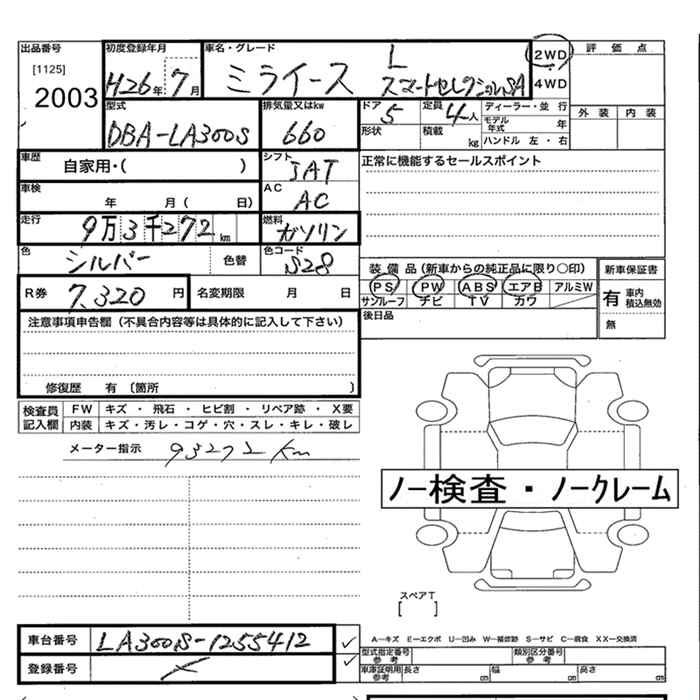 出品番号 初度登録年月 車名・グレード L 2WD 評価点
[1125] H26年 7月 ミライース スマートセレクションSA 4WD
2003
型式 排気量又はkw ドア 5 定員 4人 ディーラー・並行 外装 内装
DBA-LA300S 660 形状 積載 kg モデル年式 年
ハンドル 左・右
車歴 自家用・( ) シフト IAT 正常に機能するセールスポイント
車検 年 月( 日) AC AC
走行 9万3千272km 燃料 ガソリン
色 シルバー 色替 色コード S28 装備品(新車からの純正品に限り○印) 新車保証書
R券 7,320円 名変期限 月 日 PS PW ABS エアB アルミW 有 車内 積込無効
サンルーフ ナビ TV カワ 無
注意事項申告欄(不具合内容等は具体的に記入して下さい) 後日品
修復歴 有〔箇所 〕
検査員記入欄 FW キズ・飛石・ヒビ割・リペア跡・X要
内装 キズ・汚レ・コゲ・穴・スレ・キレ・破レ
メーター指示 93272km
ノー検査・ノークレーム
スペアT
[ ]
車台番号 LA300S-1255412 A-キズ E-エクボ U-凹み W-補修跡 S-サビ C-腐食 XX-交換済
登録番号 型式指定番号 参考 類別区分番号 参考
車庫証明用 参考 長さ cm 幅 cm 高さ cm